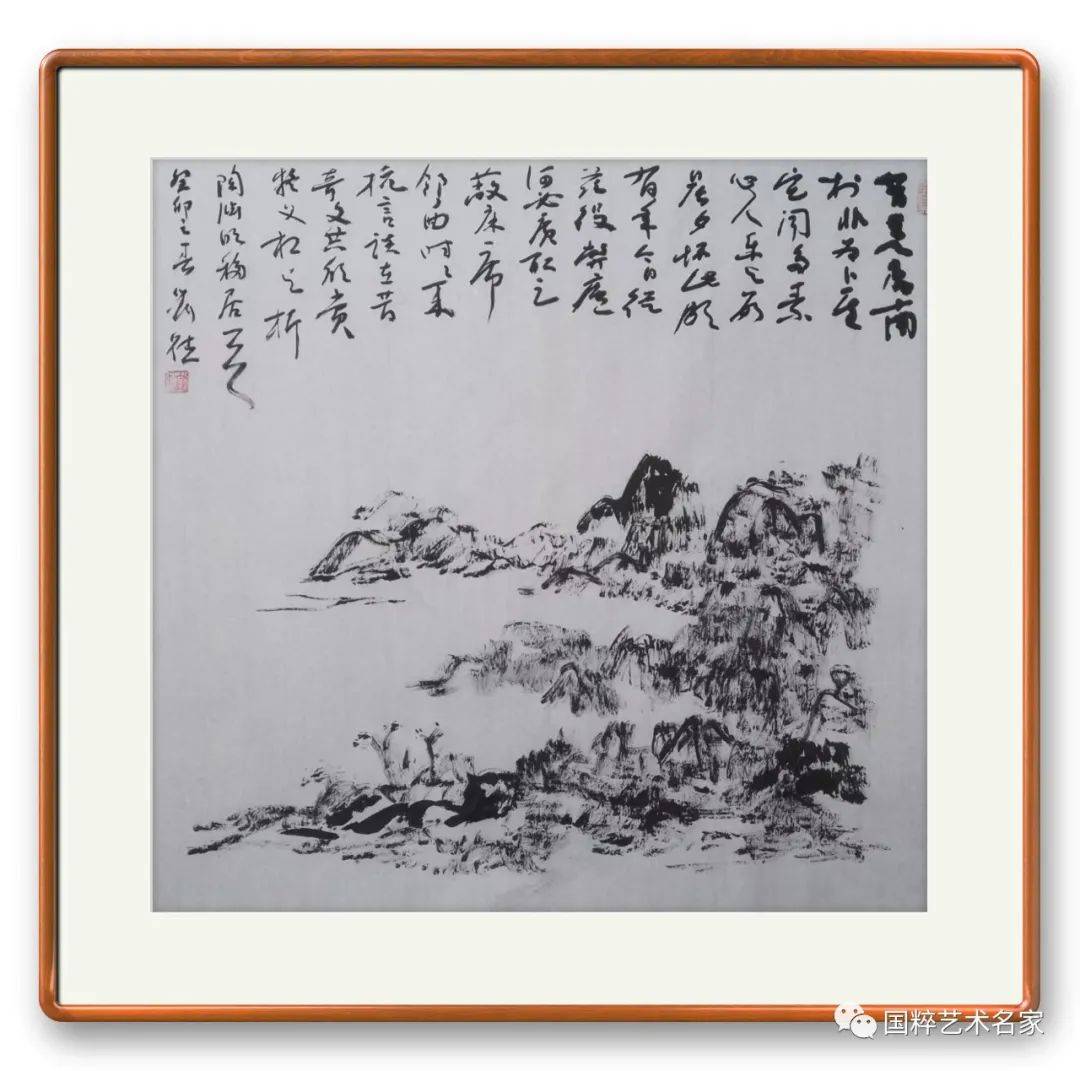 昔欲居南
村非为卜其
宅闻多素
心人乐与数
晨夕怀此颇
有年今日從
兹役弊庐
何必广取足
蔽床席
邻曲时时来
抗言谈在昔
奇文共欣赏
疑义相与析
陶渊明移居
癸卯之春
国粹艺术名家